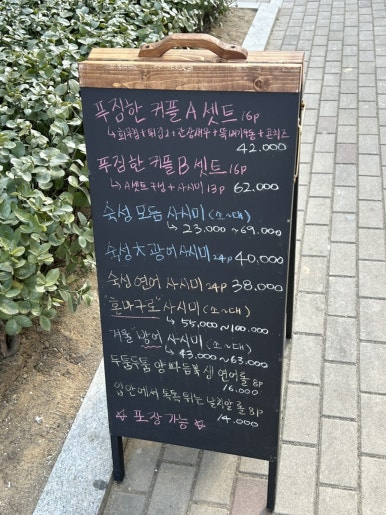 푸짐한 커플 A 셋트 16p
↳ 회무침 + 튀김2 + 간장새우 + 뚝배기우동 + 콘치즈
42.000
푸짐한 커플 B 셋트 16p
↳ A셋트 구성 + 사시미 13p 62.000
숙성 모듬 사시미 (소~대)
↳ 23.000 ~ 69.000
숙성大광어 사시미 24p 40,000
숙성 연어 사시미 24p 38.000
"혼마구로" 사시미 (소~대)
↳ 55,000 ~ 100.000
겨울 "방어" 사시미 (소~대)
↳ 43.000 ~ 63.000
두툼두툼 쌈싸듬뿍 생연어롤 8p
16.000
입안에서 톡톡 튀는 날치알 롤 8p
14.000
☆ 포장 가능 ☆